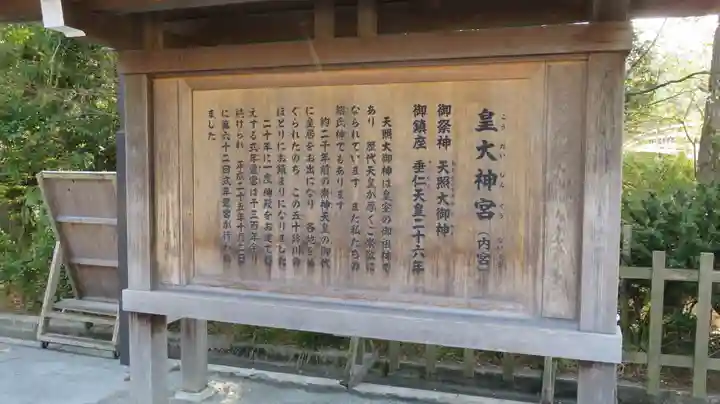 皇大神宮（内宮）
こうたいじんぐう ないくう
御祭神 天照大御神
御鎮座 垂仁天皇二十六年
天照大御神は皇室の御祖神で
あり 歴代天皇が厚くご崇敬に
なられています また私たちの
総氏神でもあります
約二千年前の崇神天皇の御代
に皇居をお出になり 各地をめ
ぐられたのち この五十鈴川の
ほとりにお鎮まりになりました
二十年に一度神殿をお建て替
えする式年遷宮は千三百年
続けられ 平成二十五年十月二日
に第六十二回式年遷宮が行
ました